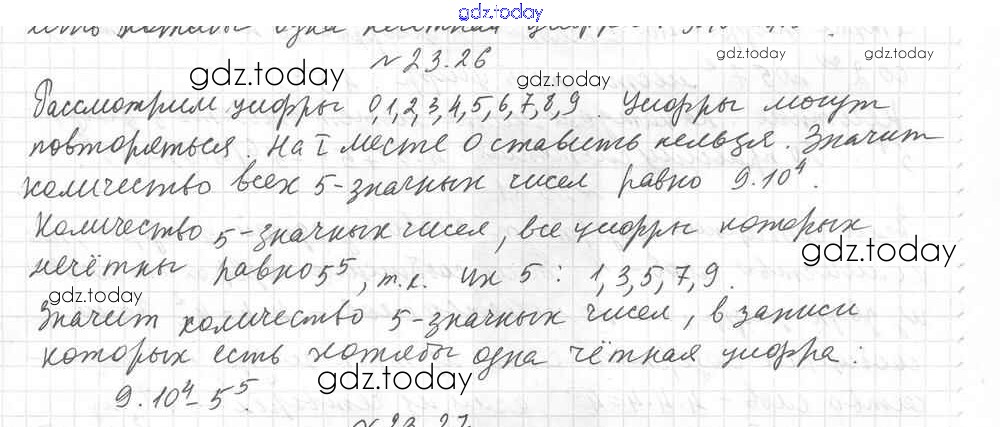 gdz.today
хотя бы одна
№ 23.26
gdz.today
gdz.today
gdz.today
gdz.today
Рассмотрим цифры 0,1,2,3,4,5,6,7,8,9. Цифры могут
повторяться. На I месте 0 ставить нельзя. Значит
количество всех 5-значных чисел равно 9·10⁴.
Количество 5-значных чисел, все цифры которых
gdz.today
нечётны равно 5⁵, т.к. их 5: 1,3,5,7,9.
gdz.today
Значит количество 5-значных чисел, в записи
которых есть хотябы одна чётная цифра:
gdz.today
9·10⁴-5⁵.
№23.27